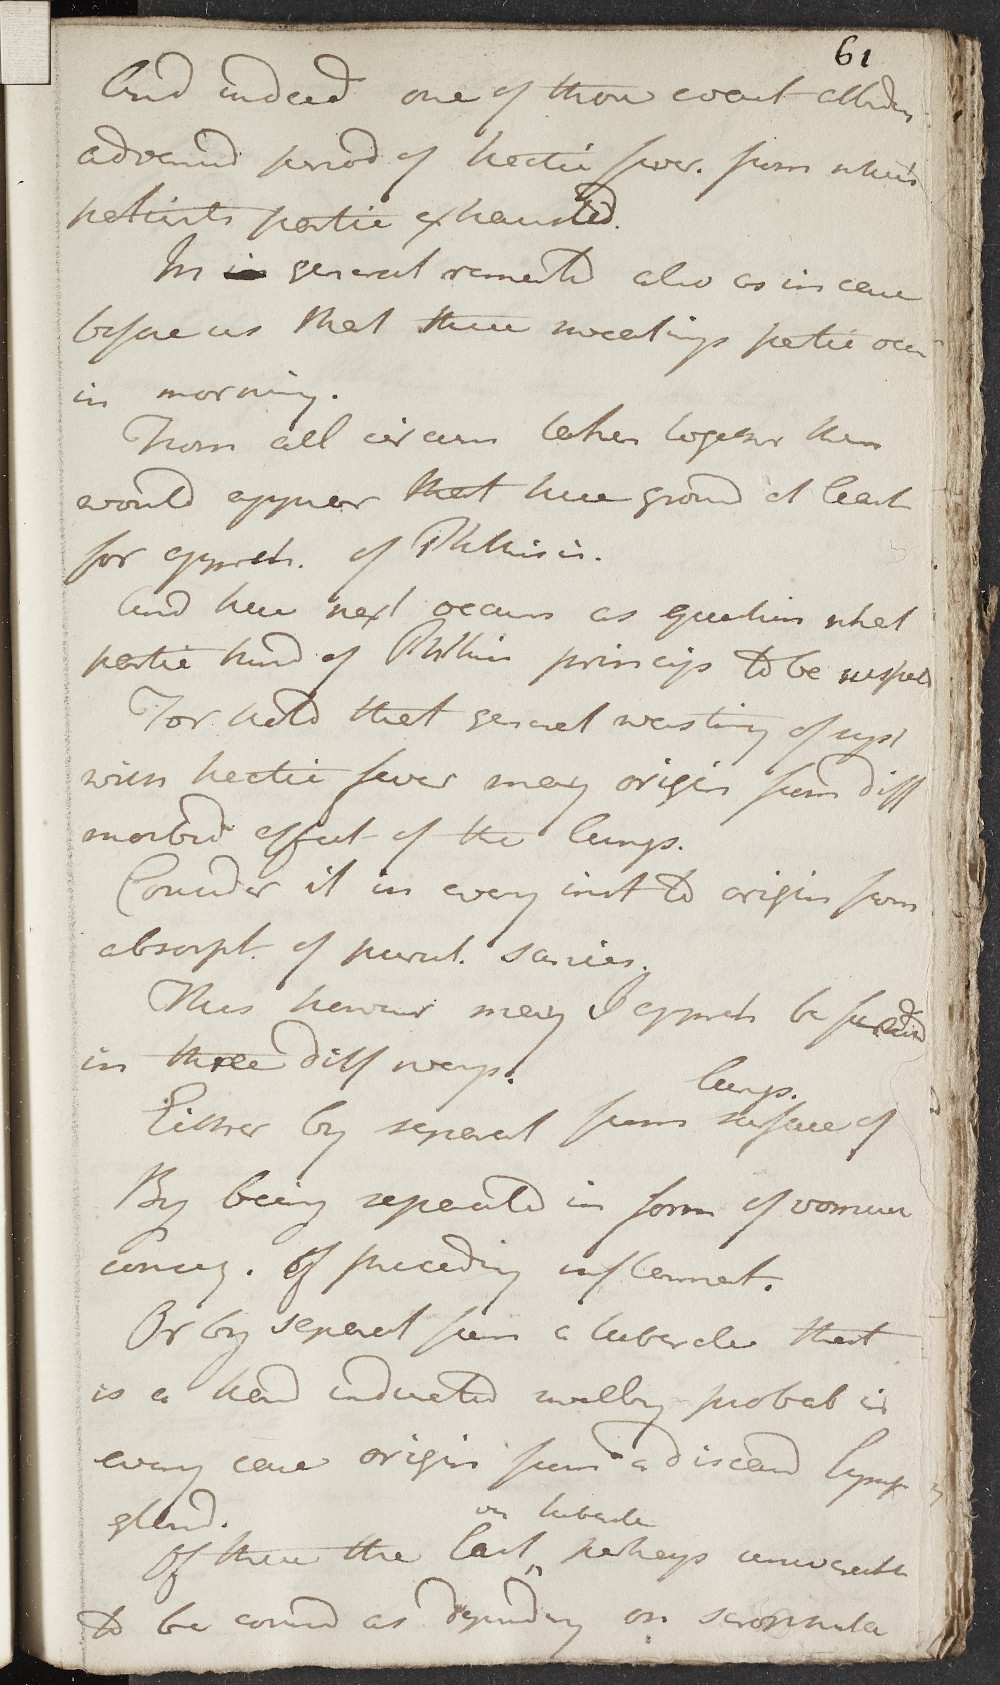 61
And indeed one of those event attendg
advanced period of hectic fever. from which
patients partic exhausted.
In general remarkd also as in case
before us that these sweatings partic occur
in morning.
From all circum taken together then
would appear that here ground at least
for appreh. of Phthisis.
And here next occurs as question what
partic kind of Phthisis princip to be suspect
For hold that general wasting of syst
with hectic fever may origin from diff
morbid affect of the lungs.
Consider it in every inst to origin from
absorpt. of purul. sanies.
This however may I appreh be
in three diff ways.
Either by separat from surface of
lungs.
By being separatd in form of vomica
conseq. of preceding inflammat.
Or by separat from a tubercle that
is a hard induratd swellg probab in
every case origin from a diseasd lymp
gland.
Of these the last or tubercle perhaps
to be considd as depending on scrophula